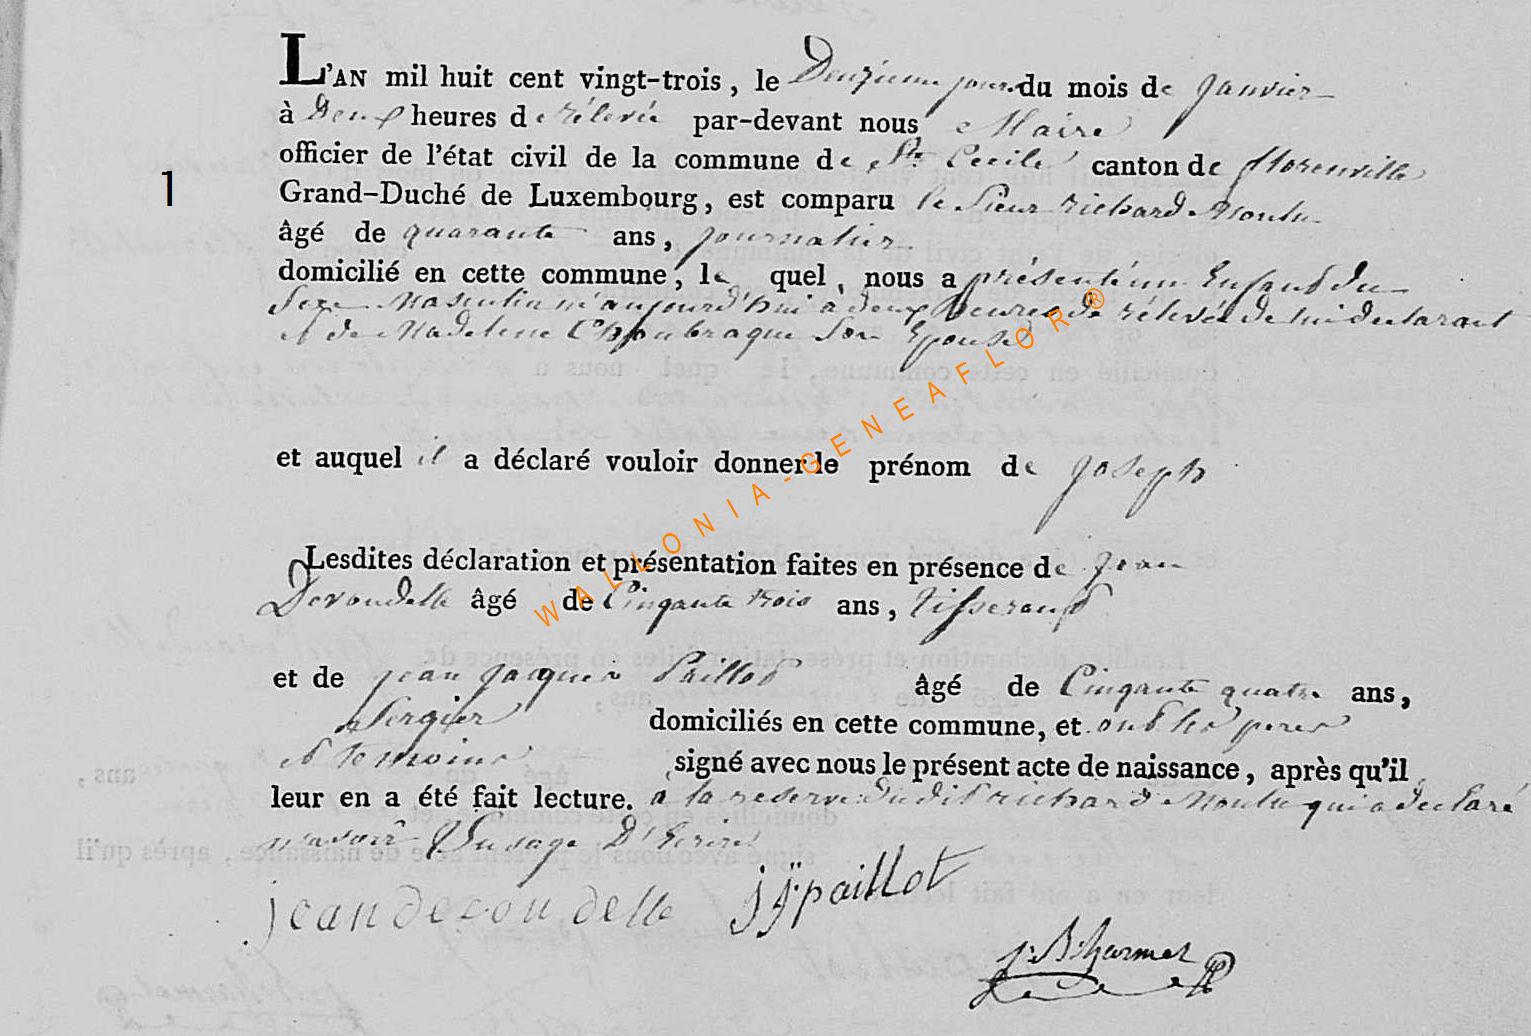 L'AN mil huit cent vingt-trois, le Deuzieme jour du mois de Janvier
à Deux heures de rélevée par-devant nous Maire
officier de l'état civil de la commune de Ste Cecile canton de florenville
1
Grand-Duché de Luxembourg, est comparu le Sieur richard Moulu
âgé de quarante ans, journalier
domicilié en cette commune, le quel, nous a présenté un Enfant du
Sexe Masculin né aujourd'hui a deux heures de rélevée de lui declarant
et de Madelene son Epouse
et auquel il a déclaré vouloir donner le prénom de joseph
Lesdites déclaration et présentation faites en présence de jean
Decoudelle âgé de Cinqante trois ans, tisserand
et de jean jacques Paillot âgé de Cinqante quatre ans,
Sergier domiciliés en cette commune, et ont les peres
et temoins signé avec nous le présent acte de naissance, après qu'il
leur en a été fait lecture. a la reserve dudit richard Moulu qui a declaré
n'avoir l'usage D'Ecrire
jean decoudelle jj paillot
WALLONIA-GENEAFLOR®